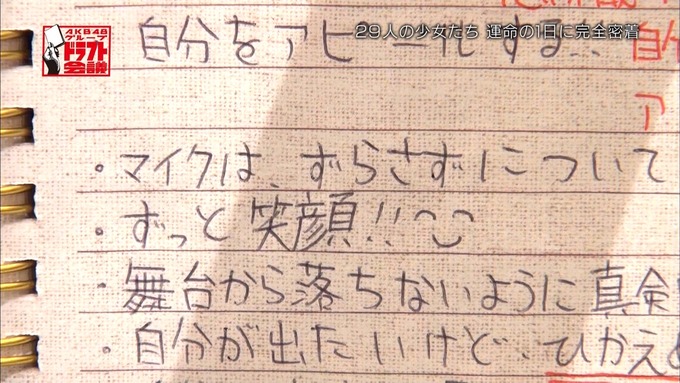 AKB48
グループ
ドラフト
会議
29人の少女たち 運命の1日に完全密着
自分をアピールする。自分
ア
・マイクは、ずらさずについて
・ずっと笑顔!!
・舞台から落ちないように真剣
・自分が出たいけど、ひかえめ